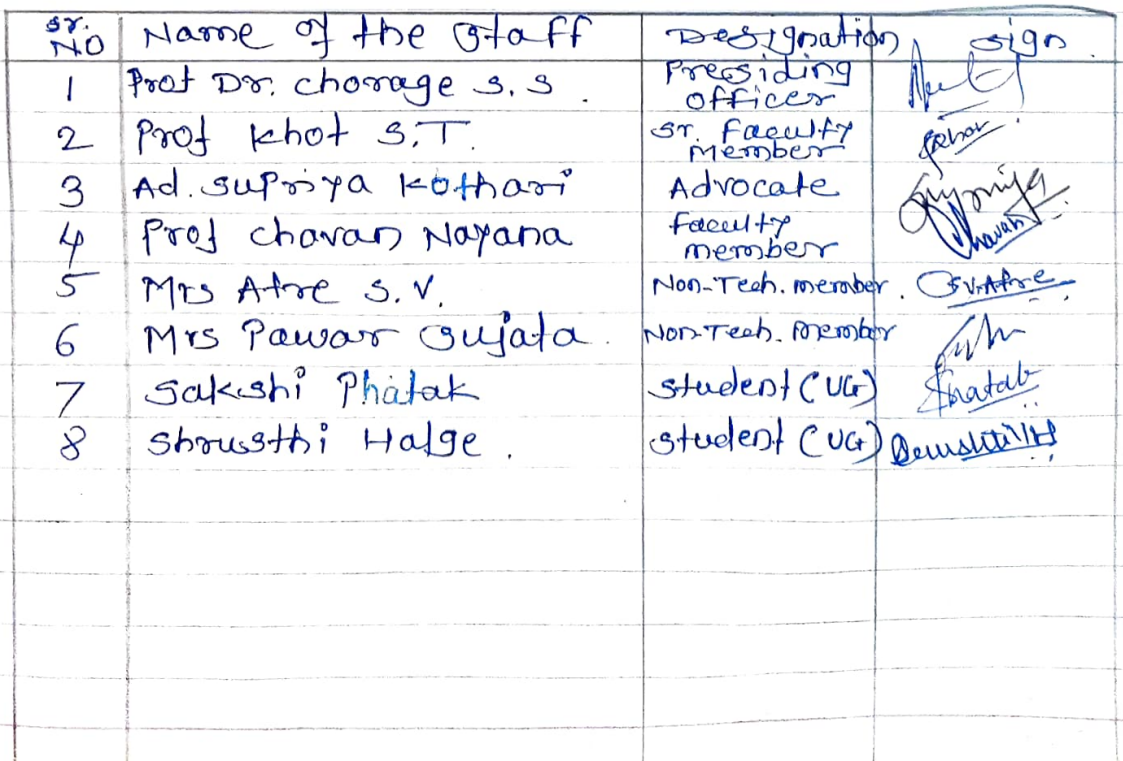 Sr. NO Name of the Staff Designation sign
1 Prof Dr. Chorage S.S. Presiding officer
2 Prof Khot S.T. Sr. Faculty Member
3 Ad. Supriya Kothari Advocate
4 Prof Chavan Nayana faculty member Chavan
5 Mrs Atre S.V. Non-Tech. member. S.V.Atre
6 Mrs Pawar Sujata. Non-Tech. Member
7 Sakshi Phatak Student (UG)
8 Shrusthi Halge. Student (UG)